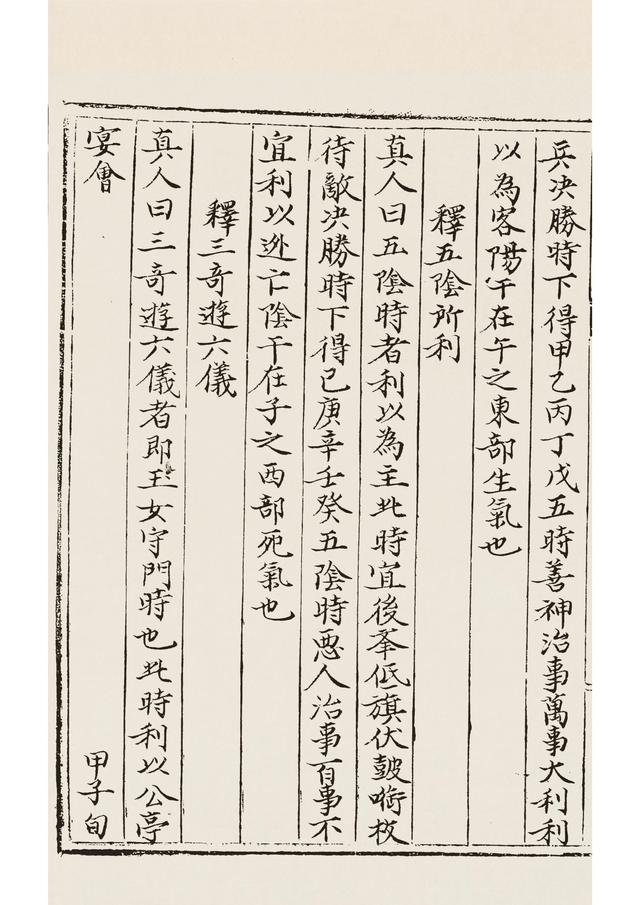 兵决勝時下得甲乙丙丁戊五時善神治事萬事大利利
以為客陽干在午之東部生氣也
釋五陰所利
真人曰五陰時者利以為主此時宜後舉低旗伏皷啣枚
待敵决勝時下得己庚辛壬癸五陰時惡人治事百事不
宜利以迯亡陰干在子之西部死氣也
釋三竒遊六儀
真人曰三竒遊六儀者即玉女守門時也此時利以公亭
宴會
甲子旬